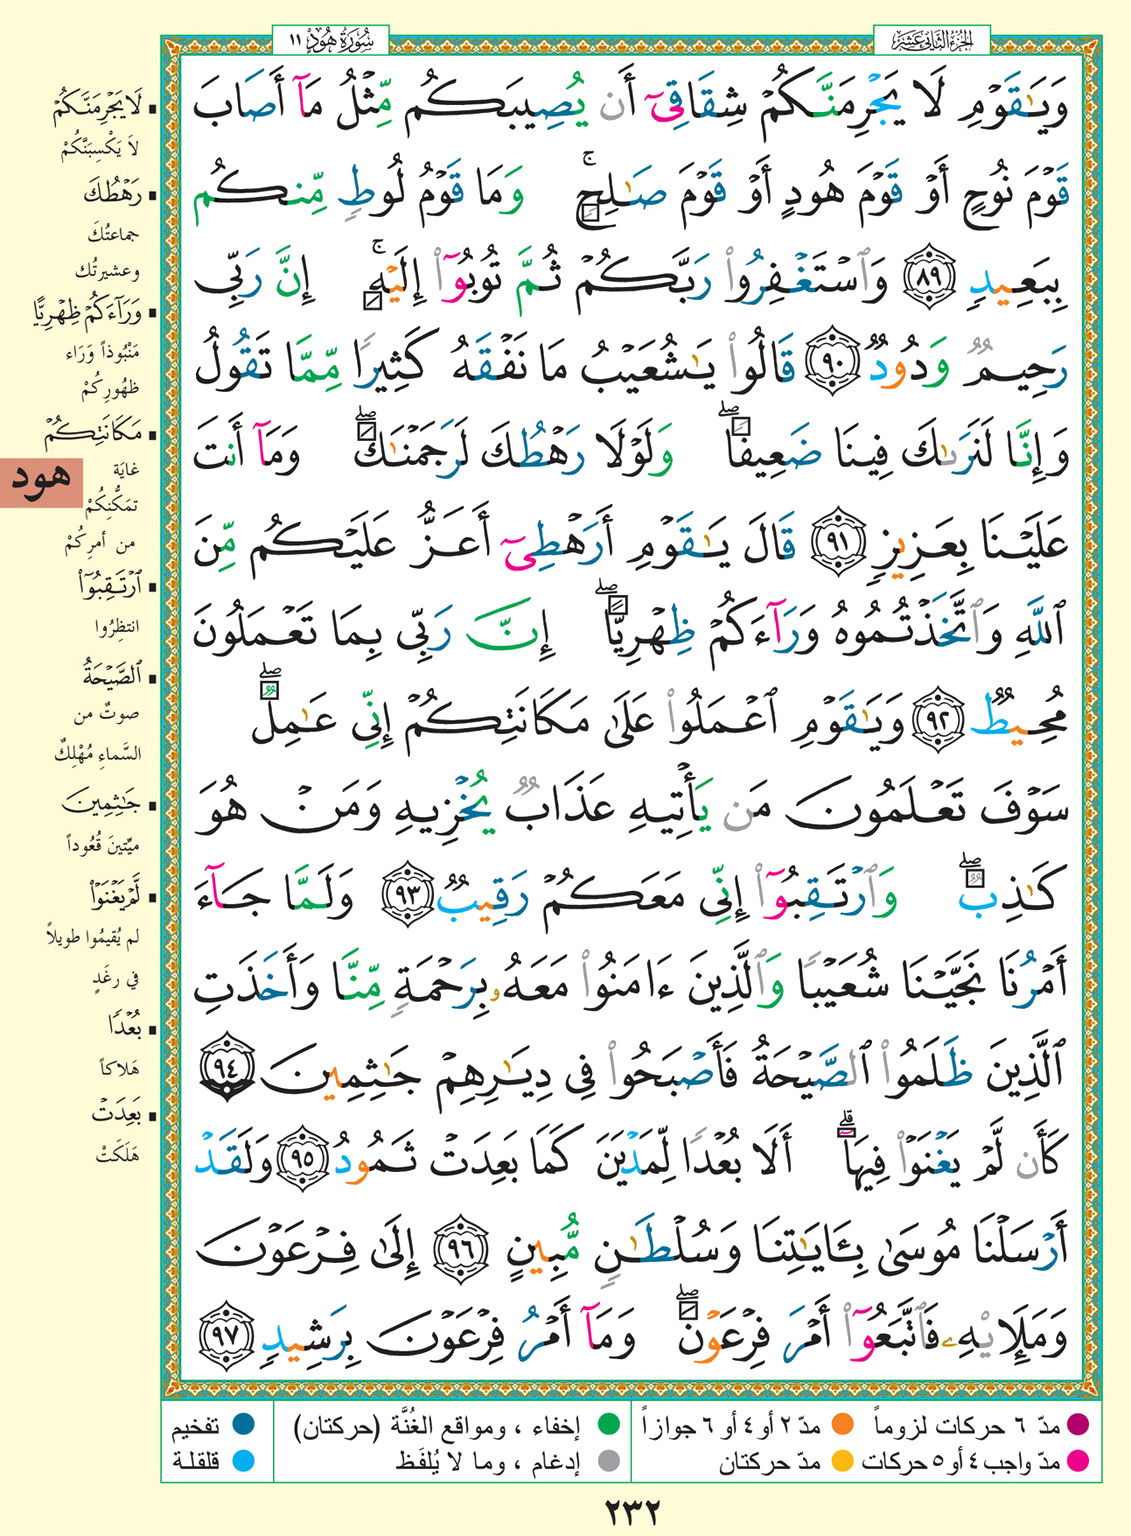 سُورَةُ هُودٍ ١١
الجزء الثاني عشر
وَيَٰقَوْمِ لَا يَجْرِمَنَّكُمْ شِقَاقِىٓ أَن يُصِيبَكُم مِّثْلُ مَآ أَصَابَ
قَوْمَ نُوحٍ أَوْ قَوْمَ هُودٍ أَوْ قَوْمَ صَٰلِحٍ ۚ وَمَا قَوْمُ لُوطٍ مِّنكُم
بِبَعِيدٍ ٨٩ وَٱسْتَغْفِرُوا۟ رَبَّكُمْ ثُمَّ تُوبُوٓا۟ إِلَيْهِ ۚ إِنَّ رَبِّى
رَحِيمٌ وَدُودٌ ٩٠ قَالُوا۟ يَٰشُعَيْبُ مَا نَفْقَهُ كَثِيرًا مِّمَّا تَقُولُ
وَإِنَّا لَنَرَىٰكَ فِينَا ضَعِيفًا ۖ وَلَوْلَا رَهْطُكَ لَرَجَمْنَٰكَ ۖ وَمَآ أَنتَ
عَلَيْنَا بِعَزِيزٍ ٩١ قَالَ يَٰقَوْمِ أَرَهْطِىٓ أَعَزُّ عَلَيْكُم مِّنَ
ٱللَّهِ وَٱتَّخَذْتُمُوهُ وَرَآءَكُمْ ظِهْرِيًّا ۖ إِنَّ رَبِّى بِمَا تَعْمَلُونَ
مُحِيطٌ ٩٢ وَيَٰقَوْمِ ٱعْمَلُوا۟ عَلَىٰ مَكَانَتِكُمْ إِنِّى عَٰمِلٌ ۖ
سَوْفَ تَعْلَمُونَ مَن يَأْتِيهِ عَذَابٌ يُخْزِيهِ وَمَنْ هُوَ
كَٰذِبٌ ۖ وَٱرْتَقِبُوٓا۟ إِنِّى مَعَكُمْ رَقِيبٌ ٩٣ وَلَمَّا جَآءَ
أَمْرُنَا نَجَّيْنَا شُعَيْبًا وَٱلَّذِينَ ءَامَنُوا۟ مَعَهُۥ بِرَحْمَةٍ مِّنَّا وَأَخَذَتِ
ٱلَّذِينَ ظَلَمُوا۟ ٱلصَّيْحَةُ فَأَصْبَحُوا۟ فِى دِيَٰرِهِمْ جَٰثِمِينَ ٩٤
كَأَن لَّمْ يَغْنَوْا۟ فِيهَآ ۗ أَلَا بُعْدًا لِّمَدْيَنَ كَمَا بَعِدَتْ ثَمُودُ ٩٥ وَلَقَدْ
أَرْسَلْنَا مُوسَىٰ بِـَٔايَٰتِنَا وَسُلْطَٰنٍ مُّبِينٍ ٩٦ إِلَىٰ فِرْعَوْنَ
وَمَلَإِي۟هِۦ فَٱتَّبَعُوٓا۟ أَمْرَ فِرْعَوْنَ ۖ وَمَآ أَمْرُ فِرْعَوْنَ بِرَشِيدٍ ٩٧
لَا يَجْرِمَنَّكُمْ
لاَ يَكْسِبَنَّكُمْ
رَهْطُكَ
جماعتُكَ
وعشيرتُك
وَرَآءَكُمْ ظِهْرِيًّا
مَنْبُوذاً وَرَاء
ظهُورِكُمْ
مَكَانَتِكُمْ
غايَة
تمَكُّنِكُمْ
من أمرِكُمْ
ٱرْتَقِبُوٓا۟
انتظِرُوا
ٱلصَّيْحَةُ
صوتٌ من
السَّماءِ مُهْلِكٌ
جَٰثِمِينَ
ميِّتينَ قُعُوداً
لَّمْ يَغْنَوْا۟
لم يُقيمُوا طويلاً
في رغَدٍ
بُعْدًا
هَلاكاً
بَعِدَتْ
هَلَكَتْ
هود
مدّ ٦ حركات لزوماً
مدّ ٢ أو ٤ أو ٦ جوازاً
إخفاء ، ومواقع الغُنَّة (حركتان)
تفخيم
مدّ واجب ٤ أو ٥ حركات
مدّ حركتان
إدغام ، وما لا يُلفَظ
قلقلة
٢٣٢